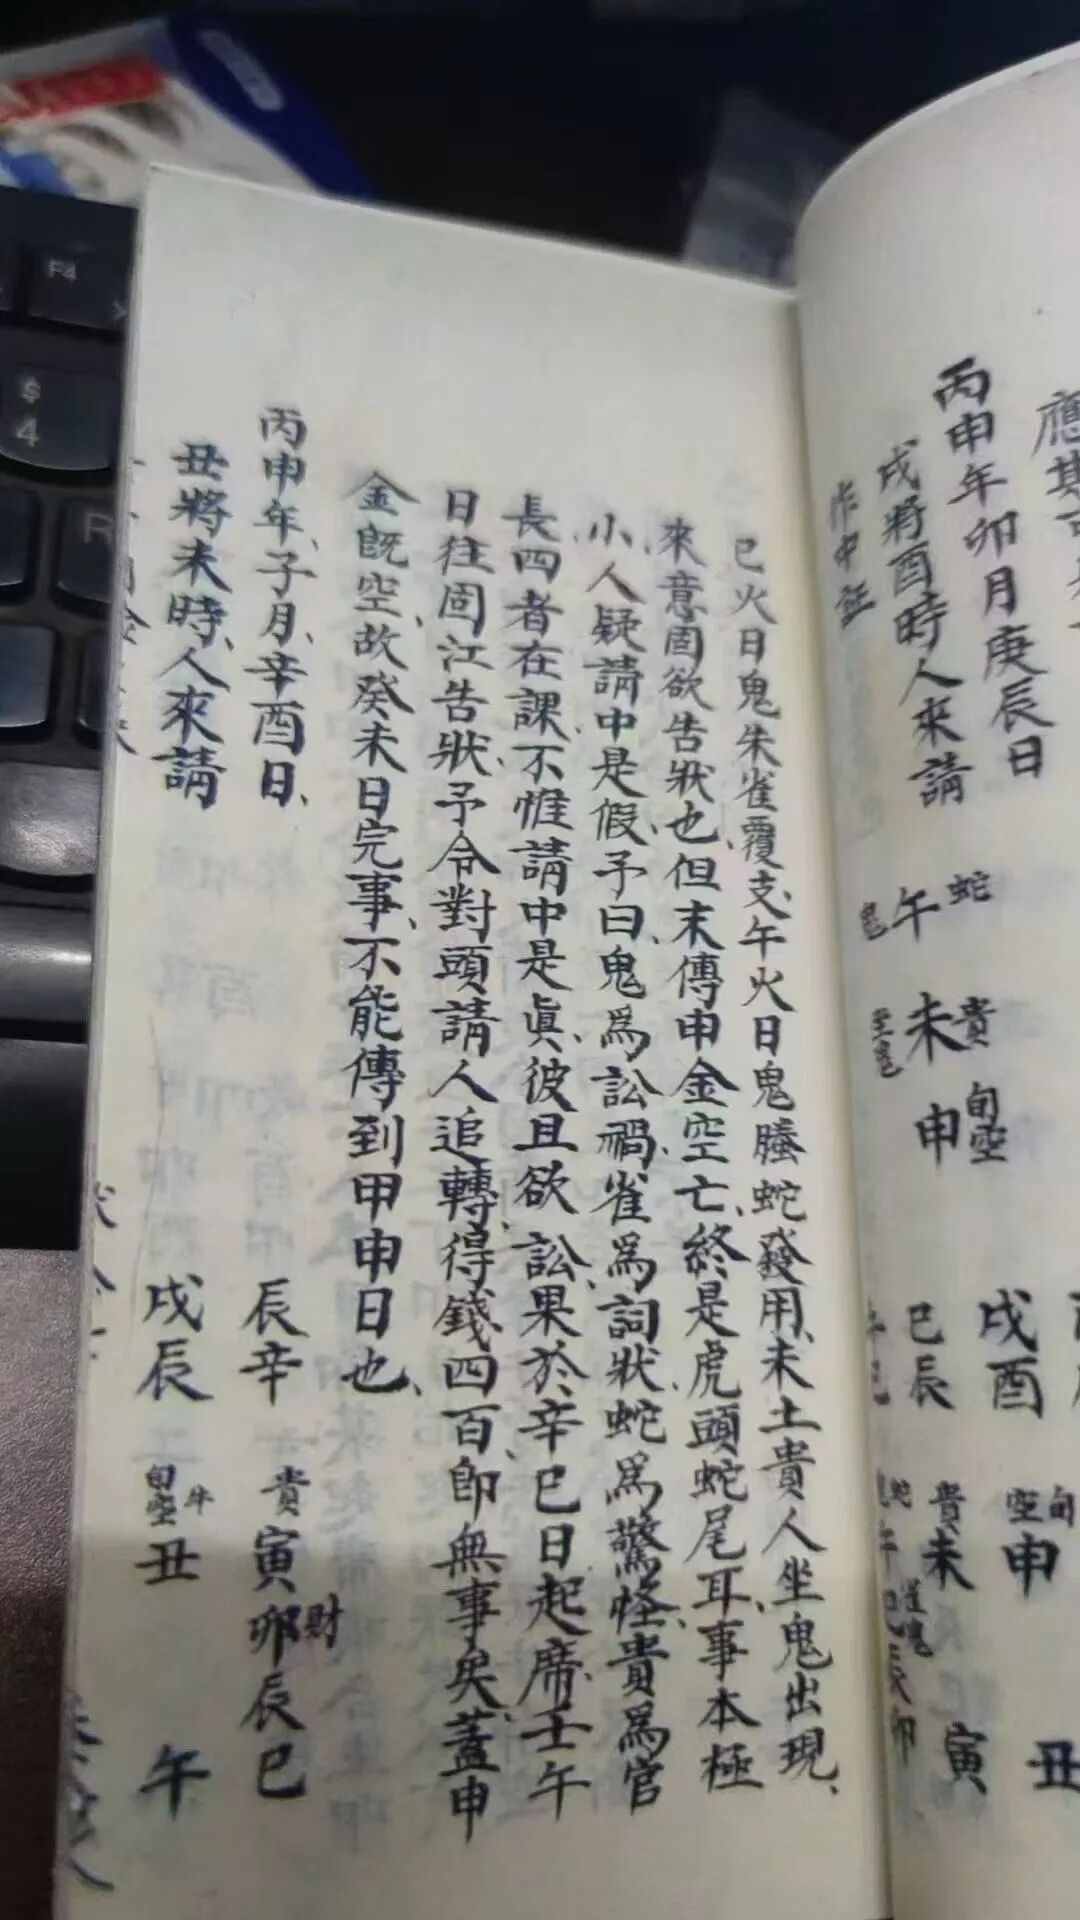 丙申年卯月庚辰日
戌將酉時人來請
作中証
蛇
午
鬼
貴
未
旬空
申
戌酉
巳辰
旬空
申
貴
未
丑
寅
巳火日鬼朱雀覆支、午火日鬼螣蛇發用、未土貴人坐鬼出現、
來意固欲告狀也、但末傳申金空亡、終是虎頭蛇尾耳、事本極
小、人疑請中是假、予曰、鬼爲訟禍、雀爲詞狀、蛇爲驚怪、貴爲官
長、四者在課、不惟請中是眞、彼且欲訟、果於辛巳日起席、壬午
日往固江告狀、予令對頭請人追轉、得錢四百、即無事矣、蓋申
金旣空、故癸未日完事、不能傳到甲申日也、
丙申年、子月、辛酉日、
丑將未時、人來請
辰辛
貴
寅卯辰巳
財
戌辰
旬空
丑
午
F4
$
4
R